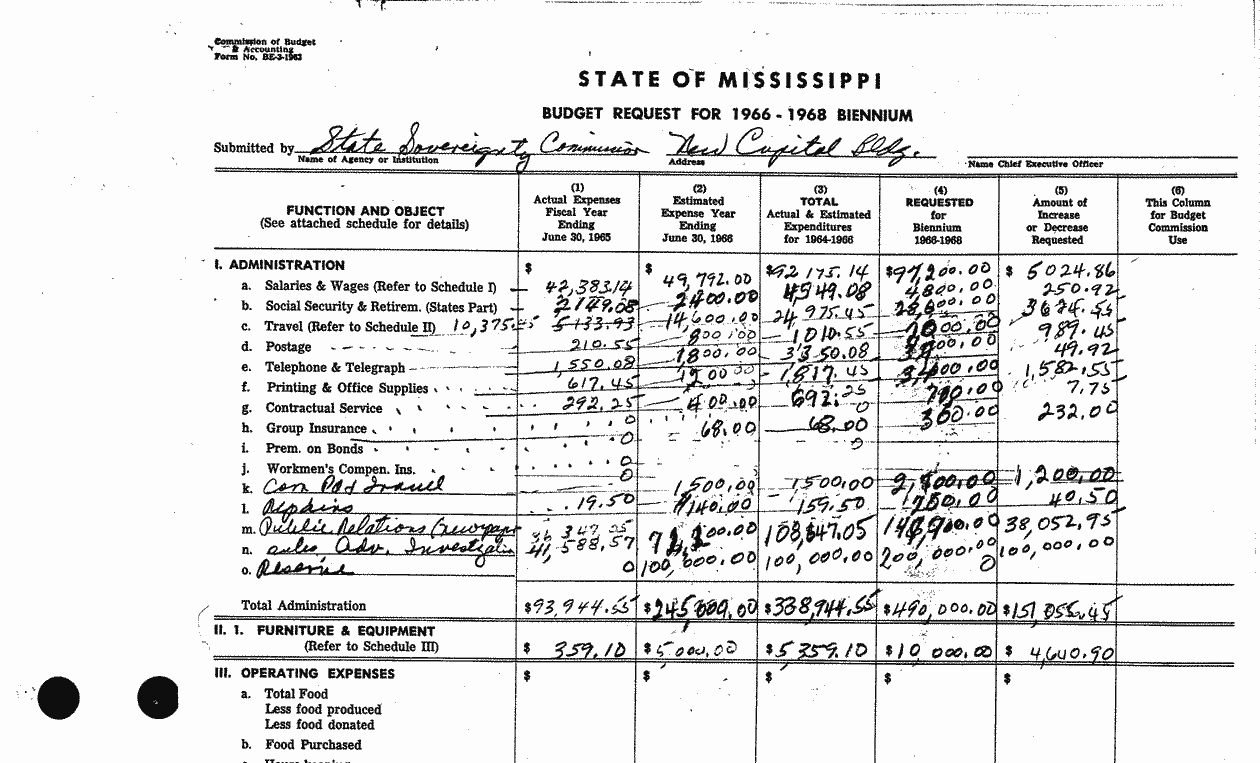 Commission of Budget
& Accounting
Form No. BE-3-1963
STATE OF MISSISSIPPI
BUDGET REQUEST FOR 1966 - 1968 BIENNIUM
Submitted by State Sovereignty Commission New Capitol Bldg.
Name of Agency or Institution Address Name Chief Executive Officer
FUNCTION AND OBJECT (See attached schedule for details)
(1) Actual Expenses Fiscal Year Ending June 30, 1965
(2) Estimated Expense Year Ending June 30, 1966
(3) TOTAL Actual & Estimated Expenditures for 1964-1966
(4) REQUESTED for Biennium 1966-1968
(5) Amount of Increase or Decrease Requested
(6) This Column for Budget Commission Use
I. ADMINISTRATION $ $ $ $ $
a. Salaries & Wages (Refer to Schedule I) 42,383.14 49,792.00 92 175.14 97,200.00 5024.86
b. Social Security & Retirem. (States Part) 2149.08 2400.00 4549.08 4800.00 250.92
c. Travel (Refer to Schedule II) 10,375.45 5133.93 14,600.00 24 975.45 28,600.00 3624.55
d. Postage 210.55 800.00 1010.55 2000.00 989.45
e. Telephone & Telegraph 1,550.08 1800.00 3350.08 49.92
f. Printing & Office Supplies 617.45 1200.00 1,817.45 3,400.00 1,582.55
g. Contractual Service 292.25 400.00 692.25 700.00 7.75
h. Group Insurance 0 68.00 68.00 300.00 232.00
i. Prem. on Bonds 0 0
j. Workmen's Compen. Ins. 0
k. Com Pad Travel 0 1,500.00 1500.00 1,200.00
l. Repairs 19.50 140.00 159.50 40.50
m. Public Relations 36 347.05 108,847.05 38,052.95
n. Adv. Investigation 41,588.57
o. Reserve 0 100,000.00 100,000.00 200,000.00 100,000.00
0
Total Administration $93,944.55 $245,000.00 $338,944.55 $490,000.00 $151,055.45
II. 1. FURNITURE & EQUIPMENT
(Refer to Schedule III) $ 359.10 $5000.00 $5359.10 $10 000.00 $ 4,640.90
III. OPERATING EXPENSES $ $ $ $ $
a. Total Food
Less food produced
Less food donated
b. Food Purchased